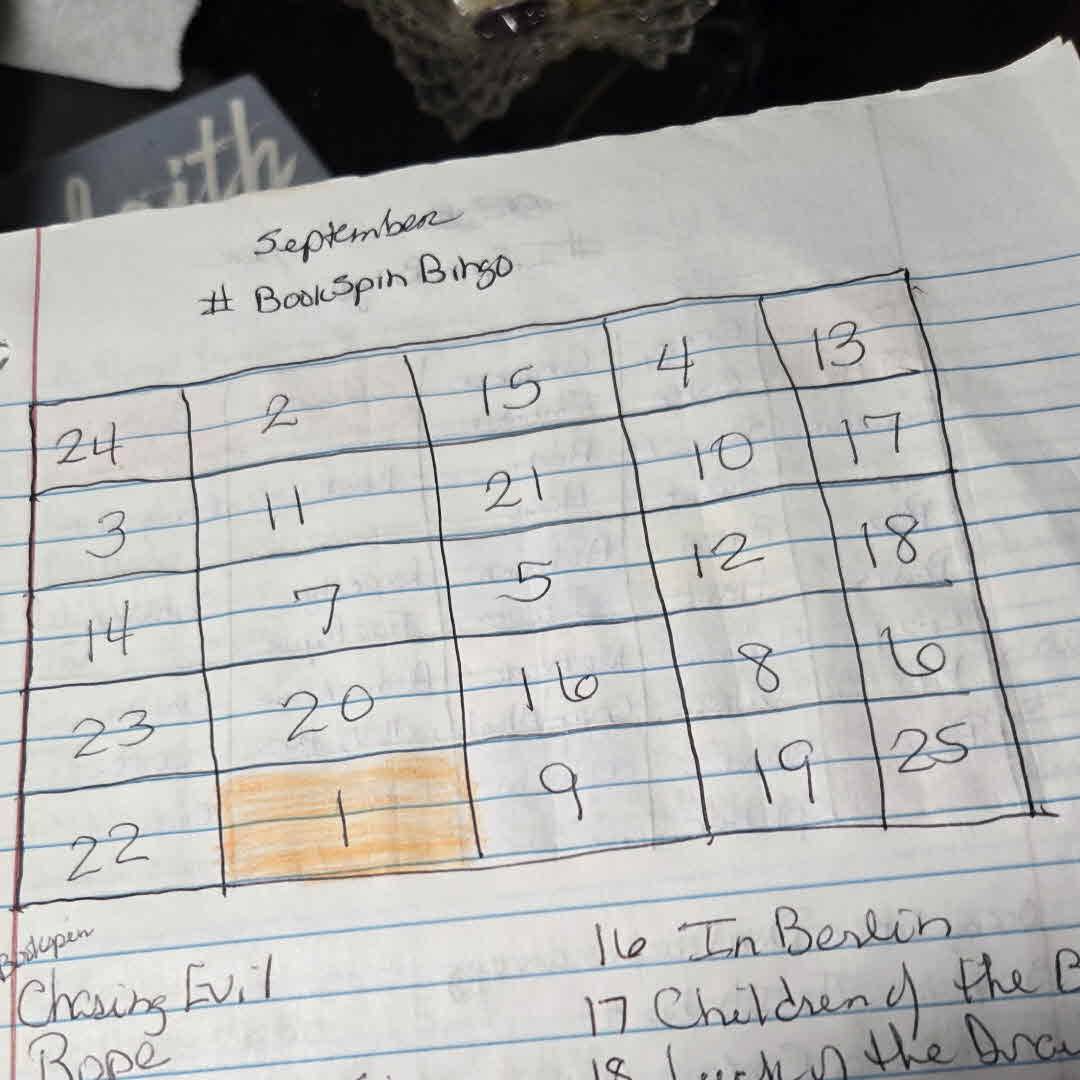 with
September
# BookSpin Bingo
24 2 15 4 13
3 11 21 10 17
14 7 5 12 18
23 20 16 8 6
22 1 9 19 25
Chasing Evil
Rope
16 In Berlin
17 Children of the
18 Luck of the